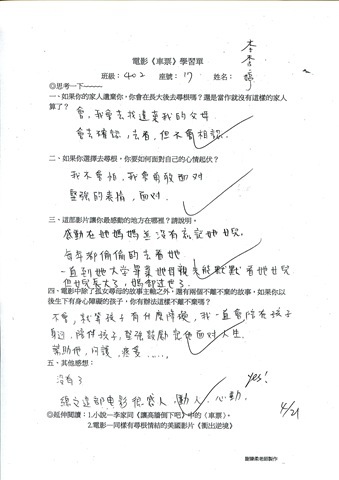 電影《車票》學習單
班級：402 座號：17 姓名：李李婷
◎思考一下~~~~~
一、如果你的家人遺棄你，你會在長大後去尋根嗎？還是當作就沒有這樣的家人
算了？
會，我會去找遺棄我的父母
會去確認，去看，但不會相認。
二、如果你選擇去尋根，你要如何面對自己的心情起伏？
我不會怕，我要勇敢面對
堅強的表情，面對
三、這部影片讓你最感動的地方在哪裡？請說明。
感動在她媽媽並沒有忘記她女兒。
每年都偷偷的去看她
一直到她大學畢業她母親
她女兒長大了，媽都
四、電影中除了孤女尋母的故事主軸之外，還有兩個不離不棄的故事，如果你以
後生下有身心障礙的孩子，你有辦法這樣不離不棄嗎？
不會，就算孩子有什麼障礙，我一直會陪在孩子
身邊，陪伴孩子，堅強鼓勵它他面對人生。
幫助他，呵護、疼愛.....。
五、其他感想：
沒有了
總之這部電影很感人，動人、心動。
yes!
4/21
◎延伸閱讀：1.小說—李家同《讓高牆倒下吧》中的〈車票〉。
2.電影—同樣有尋根情結的美國影片《衝出逆境》
老師製作